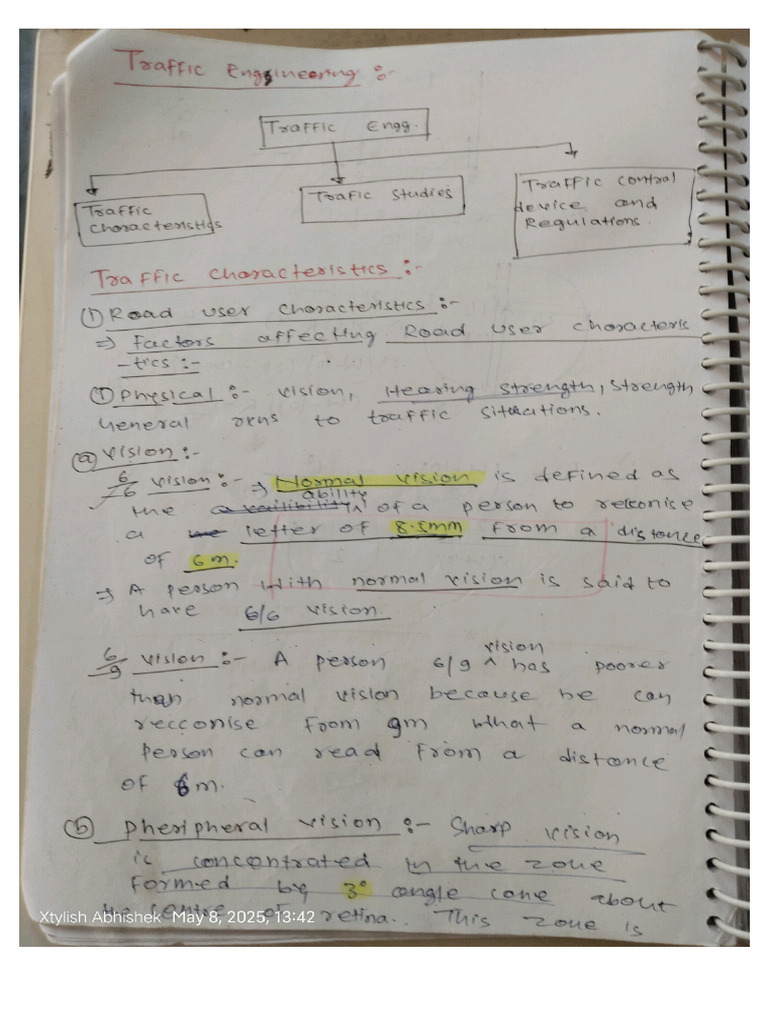 Traffic Enggineering :-
Traffic Engg.
Traffic characteristics
Trafic studies
Traffic control device and Regulations.
Traffic characteristics :-
① Road user characteristics :-
⇒ Factors affecting Road user characteris
-tics :-
① Physical :- vision, Hearing strength, strength
General to traffic situations.
ⓐ vision :-
6/6 vision :- ⇒ Normal vision is defined as
the ability of a person to reconise
a letter of 8.5mm from a distance
of 6m.
⇒ A person with normal vision is said to
have 6/6 vision
6/9 vision :- A person 6/9 vision has poorer
than normal vision because he can
recconise from 9m what a normal
person can read from a distance
of 6m.
ⓑ Pheripheral vision :- Sharp vision
is concentrated in the zone
formed by 3° angle cone about
the centre of retina. This zone is
Xtylish Abhishek May 8, 2025, 13:42